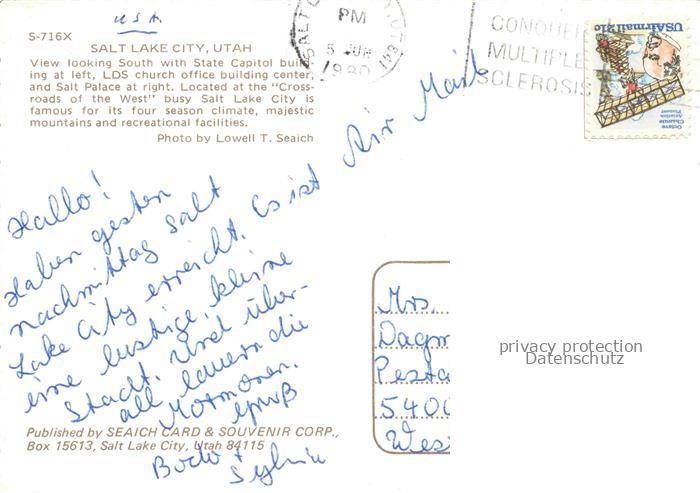 U.S.A.
S-716X
SALT LAKE CITY, UTAH
View looking South with State Capitol build-
ing at left, LDS church office building center,
and Salt Palace at right. Located at the "Cross-
roads of the West" busy Salt Lake City is
famous for its four season climate, majestic
mountains and recreational facilities.
Photo by Lowell T. Seaich
PM
5 JUN
1980
CONQUER
MULTIPLE
SCLEROSIS
USAirmail 21c
Octave
Chanute
Aviation
Pioneer
Air Mail
Hallo!
Haben gestern
nachmittag Salt
Lake City erreicht. Es ist
eine lustige, kleine
Stadt. Und über-
all lauern die
Mormonen.
Gruß
Bodo +
Sylvia
Mrs.
Dagm
Pesta
5400
Wes
privacy protection
Datenschutz
Published by SEAICH CARD & SOUVENIR CORP.,
Box 15613, Salt Lake City, Utah 84115